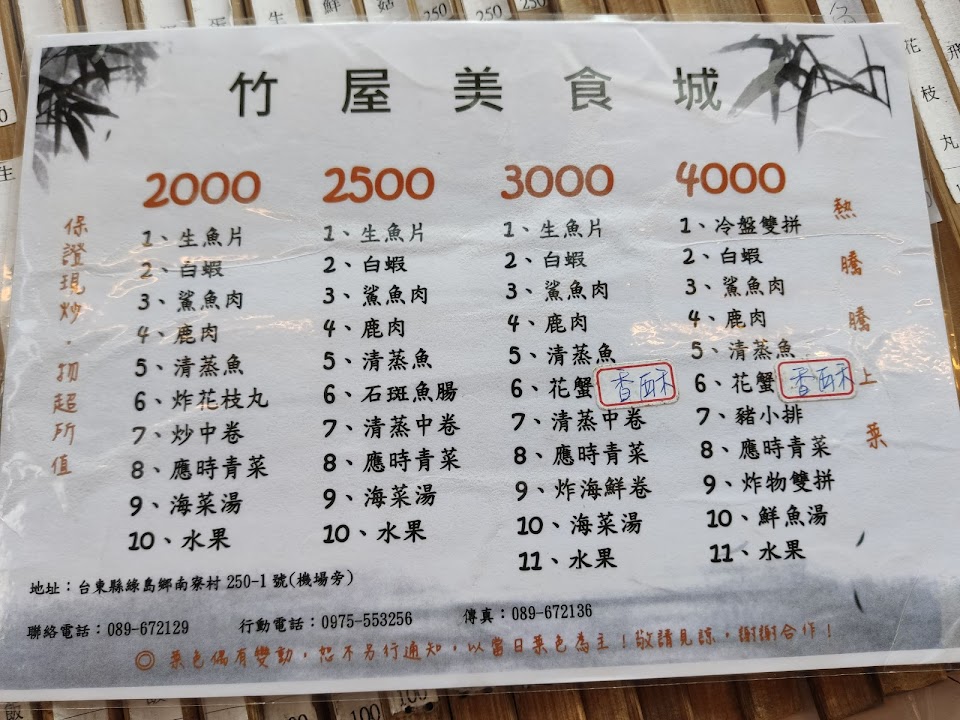 竹屋美食城
保證現炒．物超所值
2000
1、生魚片
2、白蝦
3、鯊魚肉
4、鹿肉
5、清蒸魚
6、炸花枝丸
7、炒中卷
8、應時青菜
9、海菜湯
10、水果
2500
1、生魚片
2、白蝦
3、鯊魚肉
4、鹿肉
5、清蒸魚
6、石斑魚腸
7、清蒸中卷
8、應時青菜
9、海菜湯
10、水果
3000
1、生魚片
2、白蝦
3、鯊魚肉
4、鹿肉
5、清蒸魚
6、花蟹 香酥
7、清蒸中卷
8、應時青菜
9、炸海鮮卷
10、海菜湯
11、水果
4000
1、冷盤雙拼
2、白蝦
3、鯊魚肉
4、鹿肉
5、清蒸魚
6、花蟹 香酥
7、豬小排
8、應時青菜
9、炸物雙拼
10、鮮魚湯
11、水果
熱騰騰上菜
地址：台東縣綠島鄉南寮村250-1號(機場旁)
聯絡電話：089-672129 行動電話：0975-553256 傳真：089-672136
◎ 菜色偶有變動，恕不另行通知，以當日菜色為主！敬請見諒，謝謝合作！
250
250
250
花枝丸
飛
生
飯
100
100